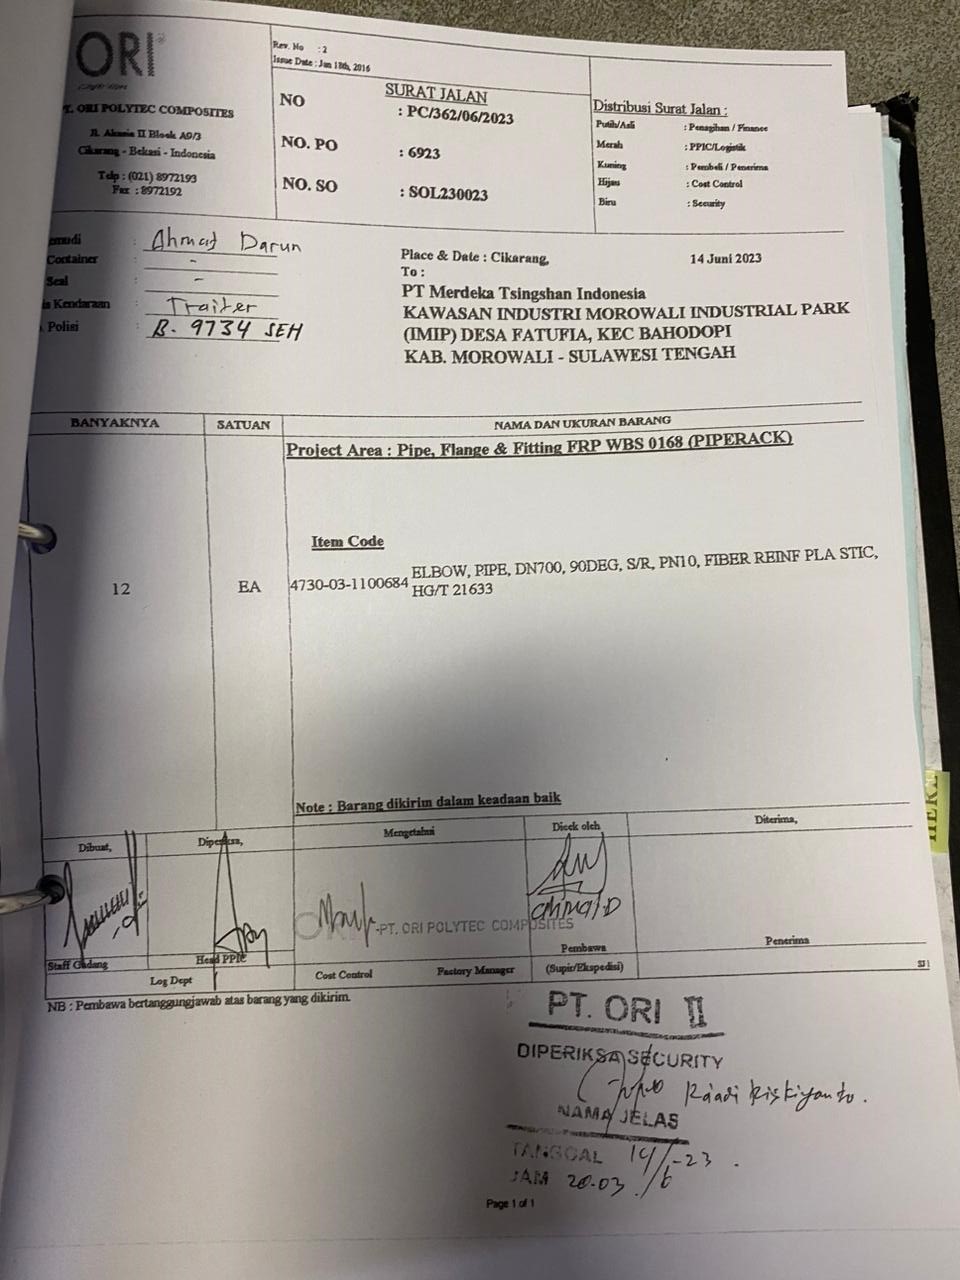 ORI
Rev. No : 2
Issue Date : Jan 18th, 2016
T. ORI POLYTEC COMPOSITES
Jl. Akasia II Block A9/3
Cikarang - Bekasi - Indonesia
Telp : (021) 8972193
Fax : 8972192
SURAT JALAN
NO : PC/362/06/2023
NO. PO : 6923
NO. SO : SOL230023
Distribusi Surat Jalan :
Putih/Asli : Penagihan / Finance
Merah : PPIC/Logistik
Kuning : Pembeli / Penerima
Hijau : Cost Control
Biru : Security
emudi : Ahmad Darun
Container : -
Seal : -
is Kendaraan : Trailer
Polisi : B. 9734 SEH
Place & Date : Cikarang, 14 Juni 2023
To :
PT Merdeka Tsingshan Indonesia
KAWASAN INDUSTRI MOROWALI INDUSTRIAL PARK
(IMIP) DESA FATUFIA, KEC BAHODOPI
KAB. MOROWALI - SULAWESI TENGAH
BANYAKNYA SATUAN NAMA DAN UKURAN BARANG
Project Area : Pipe, Flange & Fitting FRP WBS 0168 (PIPERACK)
Item Code
12 EA 4730-03-1100684 ELBOW, PIPE, DN700, 90DEG, S/R, PN10, FIBER REINF PLA STIC,
HG/T 21633
Note : Barang dikirim dalam keadaan baik
Dibuat, Diperiksa, Mengetahui Dicek oleh Diterima,
PT. ORI POLYTEC COMPOSITES
Staff Gudang Head PPIC Pembawa Penerima
Log Dept Cost Control Factory Manager (Supir/Ekspedisi)
SJ1
NB : Pembawa bertanggungjawab atas barang yang dikirim.
PT. ORI II
DIPERIKSA SECURITY
NAMA JELAS
TANGGAL 14/6-23
JAM 20.03
Page 1 of 1